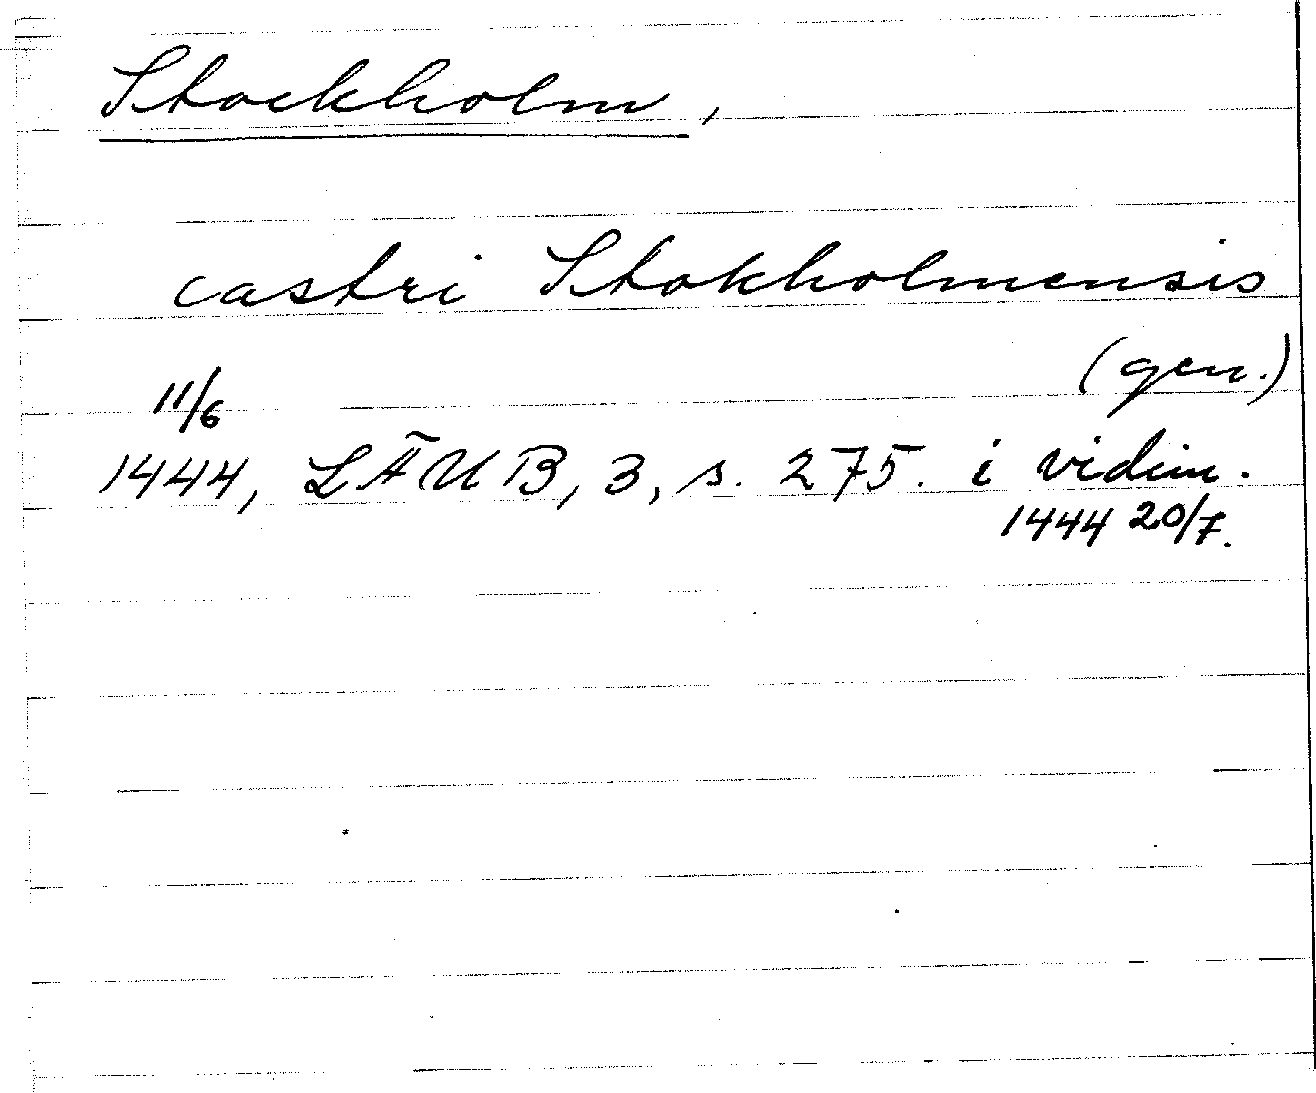 Stockholm,
castri Stokholmensis
(gen.)
11/6
1444, LÄUB, 3, s. 275. i vidim.
1444 20/7.